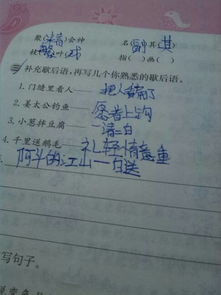 聚(精)会神 名(副)其(其)
枝(繁)叶(茂) 指( )画( )
三 补充歇后语,再写几个你熟悉的歇后语。
1. 门缝里看人——把人看扁了
2. 姜太公钓鱼——愿者上钩
3. 小葱拌豆腐——一清二白
4. 千里送鹅毛——礼轻情意重
阿斗的江山——白送
写句子。